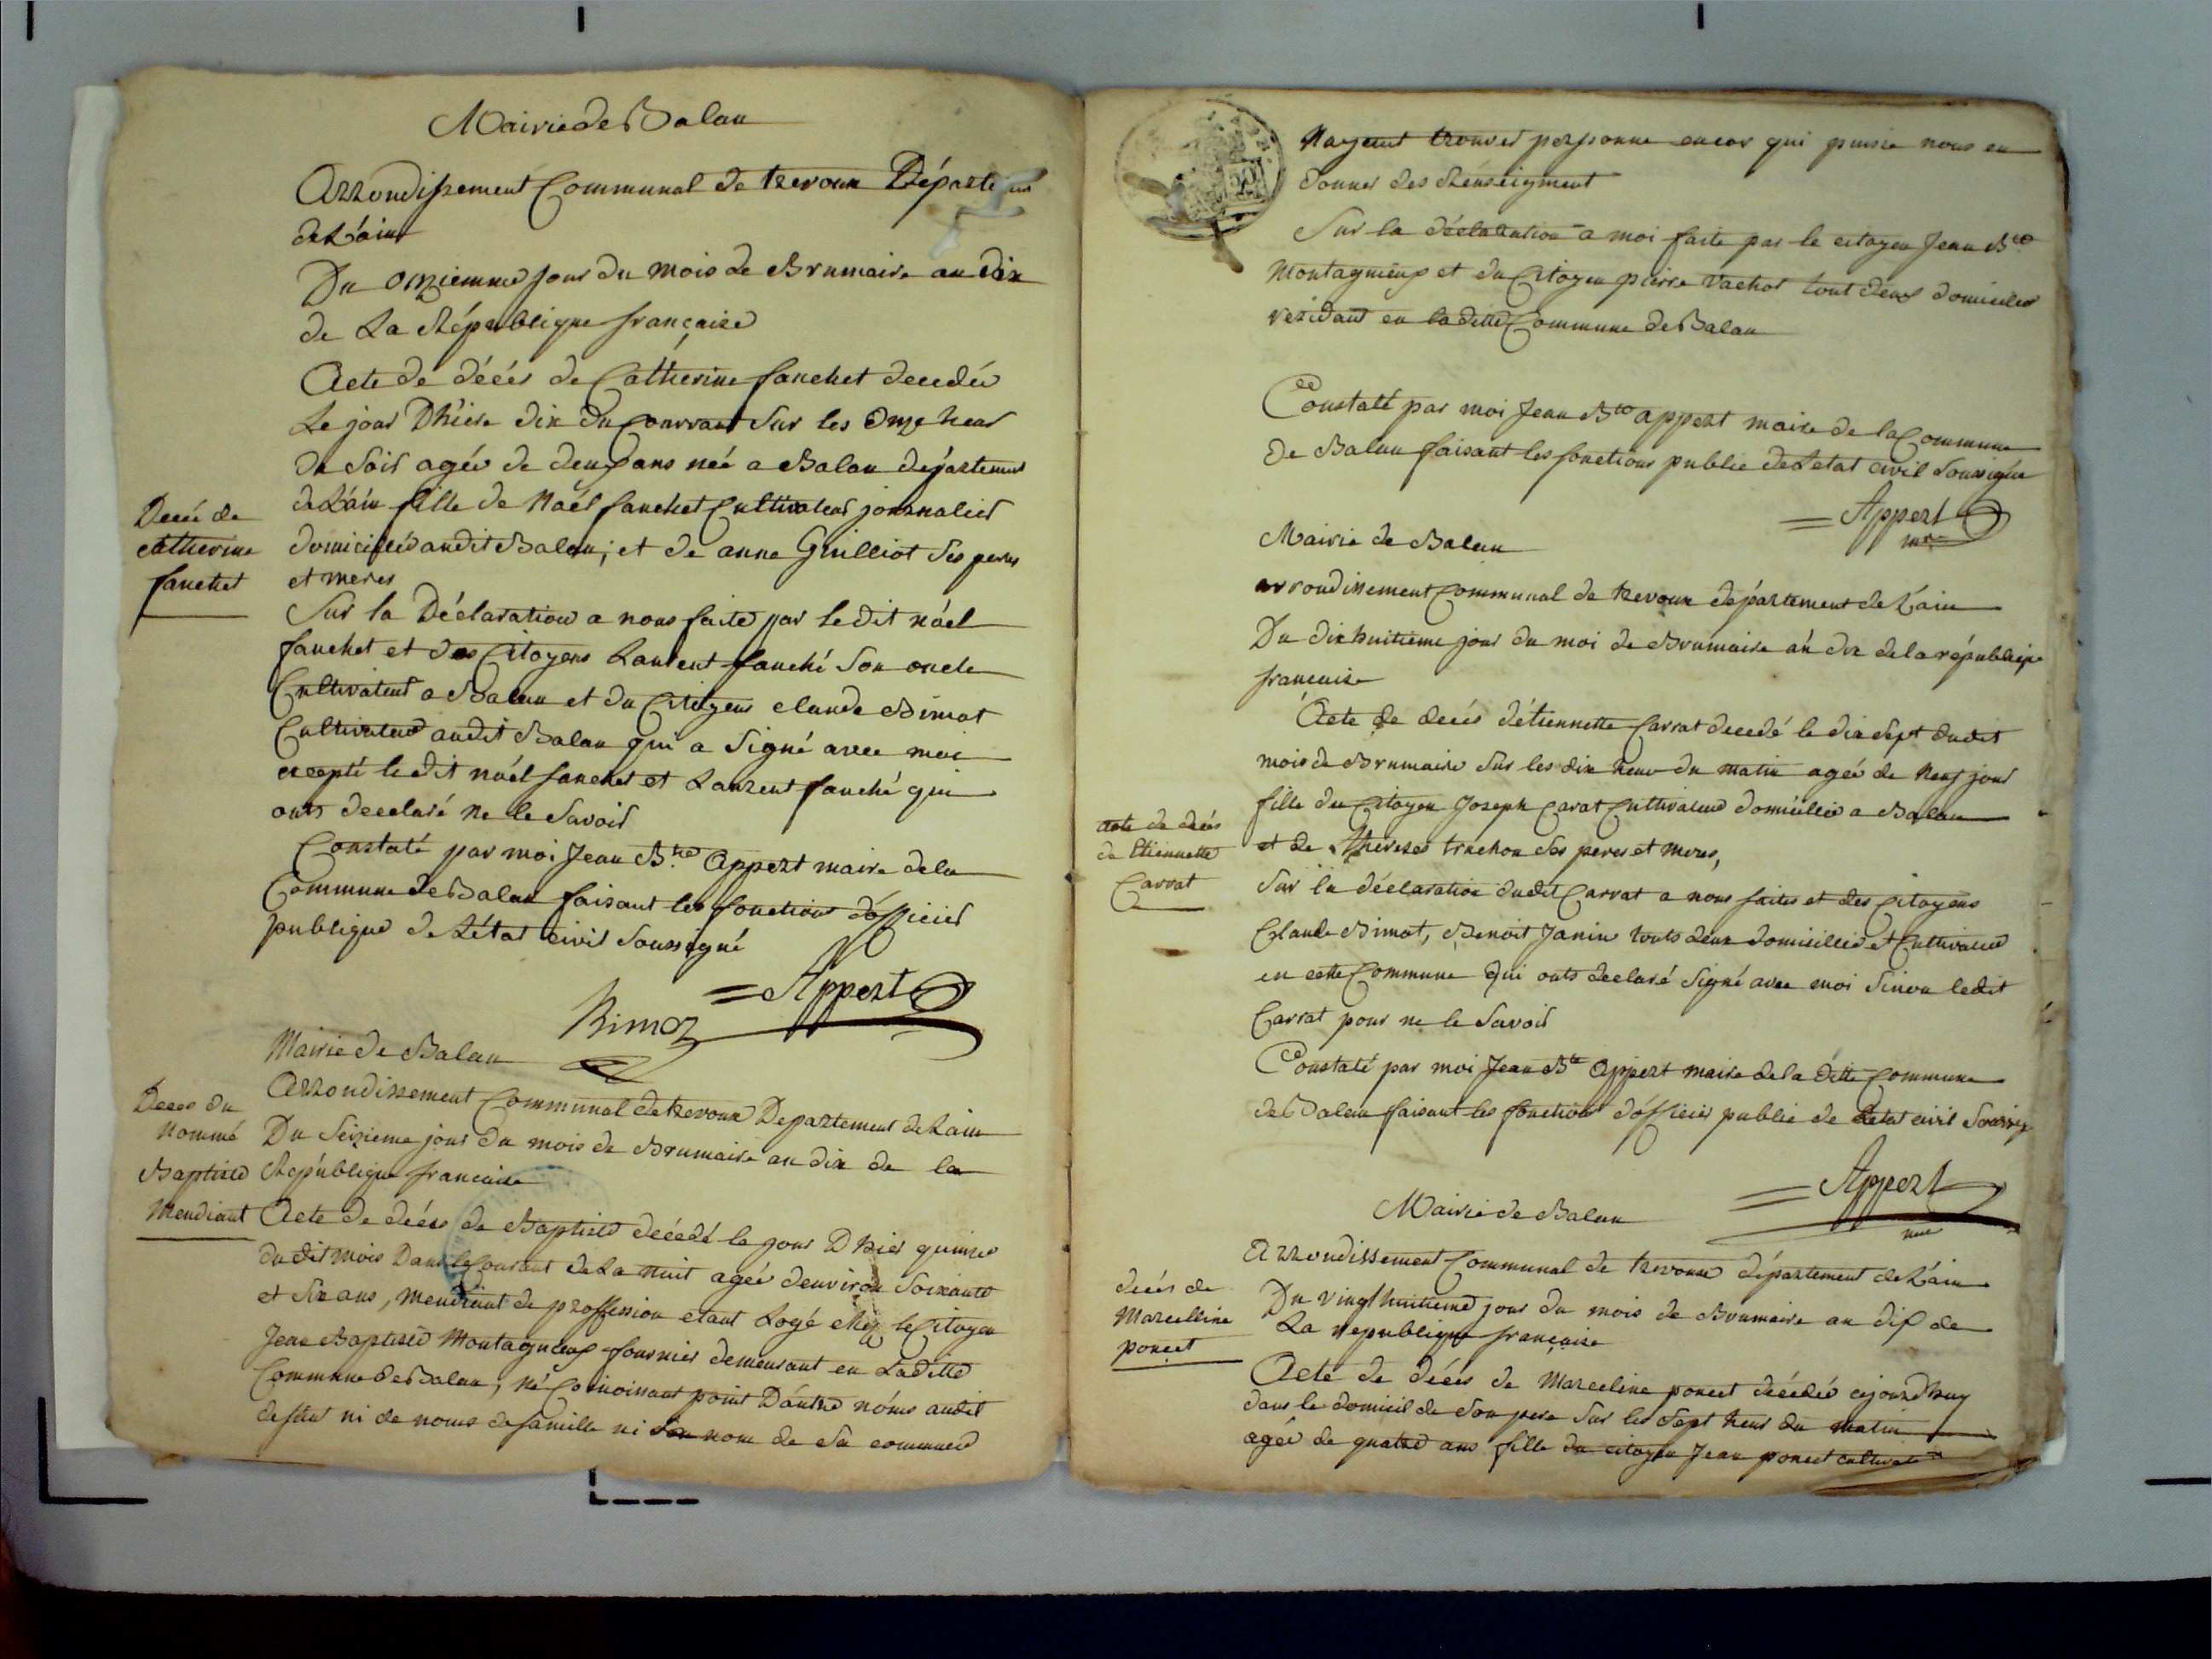 Mairie de Balan
Arrondissement Communal de trevoux Départem
de L'ain
Du onziemme jour du mois de Brumaire an dix
de La République française
Acte de décés de Catherine fanchet decedée
Le jour D'hière dix du Courrant sur les onze heur
du soir agée de deux ans née a Balan départemens
de L'ain fille de Noël fanchet Cultivateur journalier
Deces de
catherine
fanchet
domiciliés audit Balan, et de anne Guilliot ses peres
et meres
Sur la Déclaration a nous faite par ledit noël
fanchet et des Citoyens Laurent fanché son oncle
Cultivateur a Balan et du Citoyens claude Bimot
Cultivateur audit Balan qui a Signé avec moi
excepté ledit noél fanchet et Laurent fanché qui
onts declaré ne le Savoir
Constaté par moi Jean Bte Appert maire de la
Commune de Balan faisant les fonctions d'officier
publique de L'état civil Soussigné
= Appert
Bimoz
Mairie de Balan
Arrondissement Communal de trevoux Departement de Lain
Du Seizieme jour du mois de Brumaire an dix de la
République francaise
Deces du
nommé
Baptiste
Mendiant
Acte de déces de Baptiste décedé le jour D'hier quinze
dudit mois Dans le Courant de La nuit agée d'environ Soixante
et Six ans, mendiant de proffession etant Logé chez le Citoyen
Jean Baptiste Montagneux fournier demeurant en Laditte
Commune de Balan, né Connoissant point D'autre nóms audit
defunt ni de noms de famille ni son nom de Sa commune
Nayant trouver personne encor qui puisse nous en
donner des Renseigment
Sur la déclaration a moi faite par le citoyen Jean Bte
Montagnieux et du Citoyen pierre Vachot tout deux domicilier
residant en la ditte Commune de Balan
Constaté par moi Jean Bte appert maire de la Commune
de Balan faisant les fonctions public de Letat civil Soussigné
= Appert
mre
Mairie de Balan
arrondissement Communal de trevoux département de L'ain
Du dix huitieme jour du moi de Brumaire an dix de la républiqe
francaise
Acte de decés d'étiennette Carrat decedé le dix Sept dudit
mois de Brumaire Sur les dix heur du matin agée de neuf jour
fille du Citoyen Joseph Carat Cultivateur domicillié a Balan
et de Therèses truchon Ses peres et meres,
acte de decés
de Etiennette
Carrat
Sur la déclaration dudit Carrat a nous faites et des Citoyens
Claude Bimot, Benoit Janin touts deux domicilliée et Cultivateur
en cette Commune qui onts declaré Signé avec moi Sinon ledit
Carrat pour ne le Savoir
Constaté par moi Jean Bte Appert maire de la ditte Commune
de Balan faisant les fonctions d'officier public de L'etat civil Soussig
= Appert
mre
Mairie de Balan
Arrondissement Communal de trevoux département de L'ain
decés de
Marcelline
poncet
Du vingt huitieme jour du mois de Brumaire an dix de
La republique française
Acte de décés de Marceline poncet décédée cejourd'huy
dans le domicil de Son pere Sur les Sept heur du matin
agée de quatre ans fille du citoyen Jean poncet cultivateur